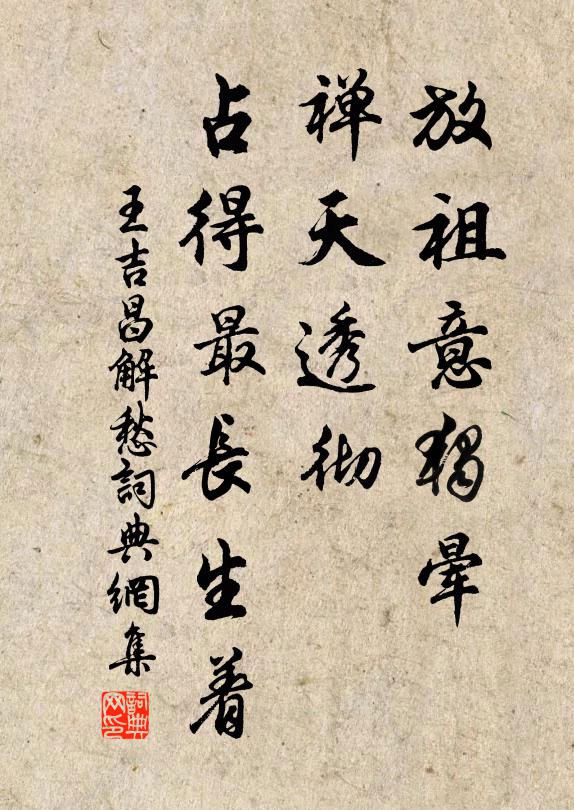 放祖意獨暈
禅天透彻
占得最長生着
王吉昌解愁詞典網集
詞典
网印